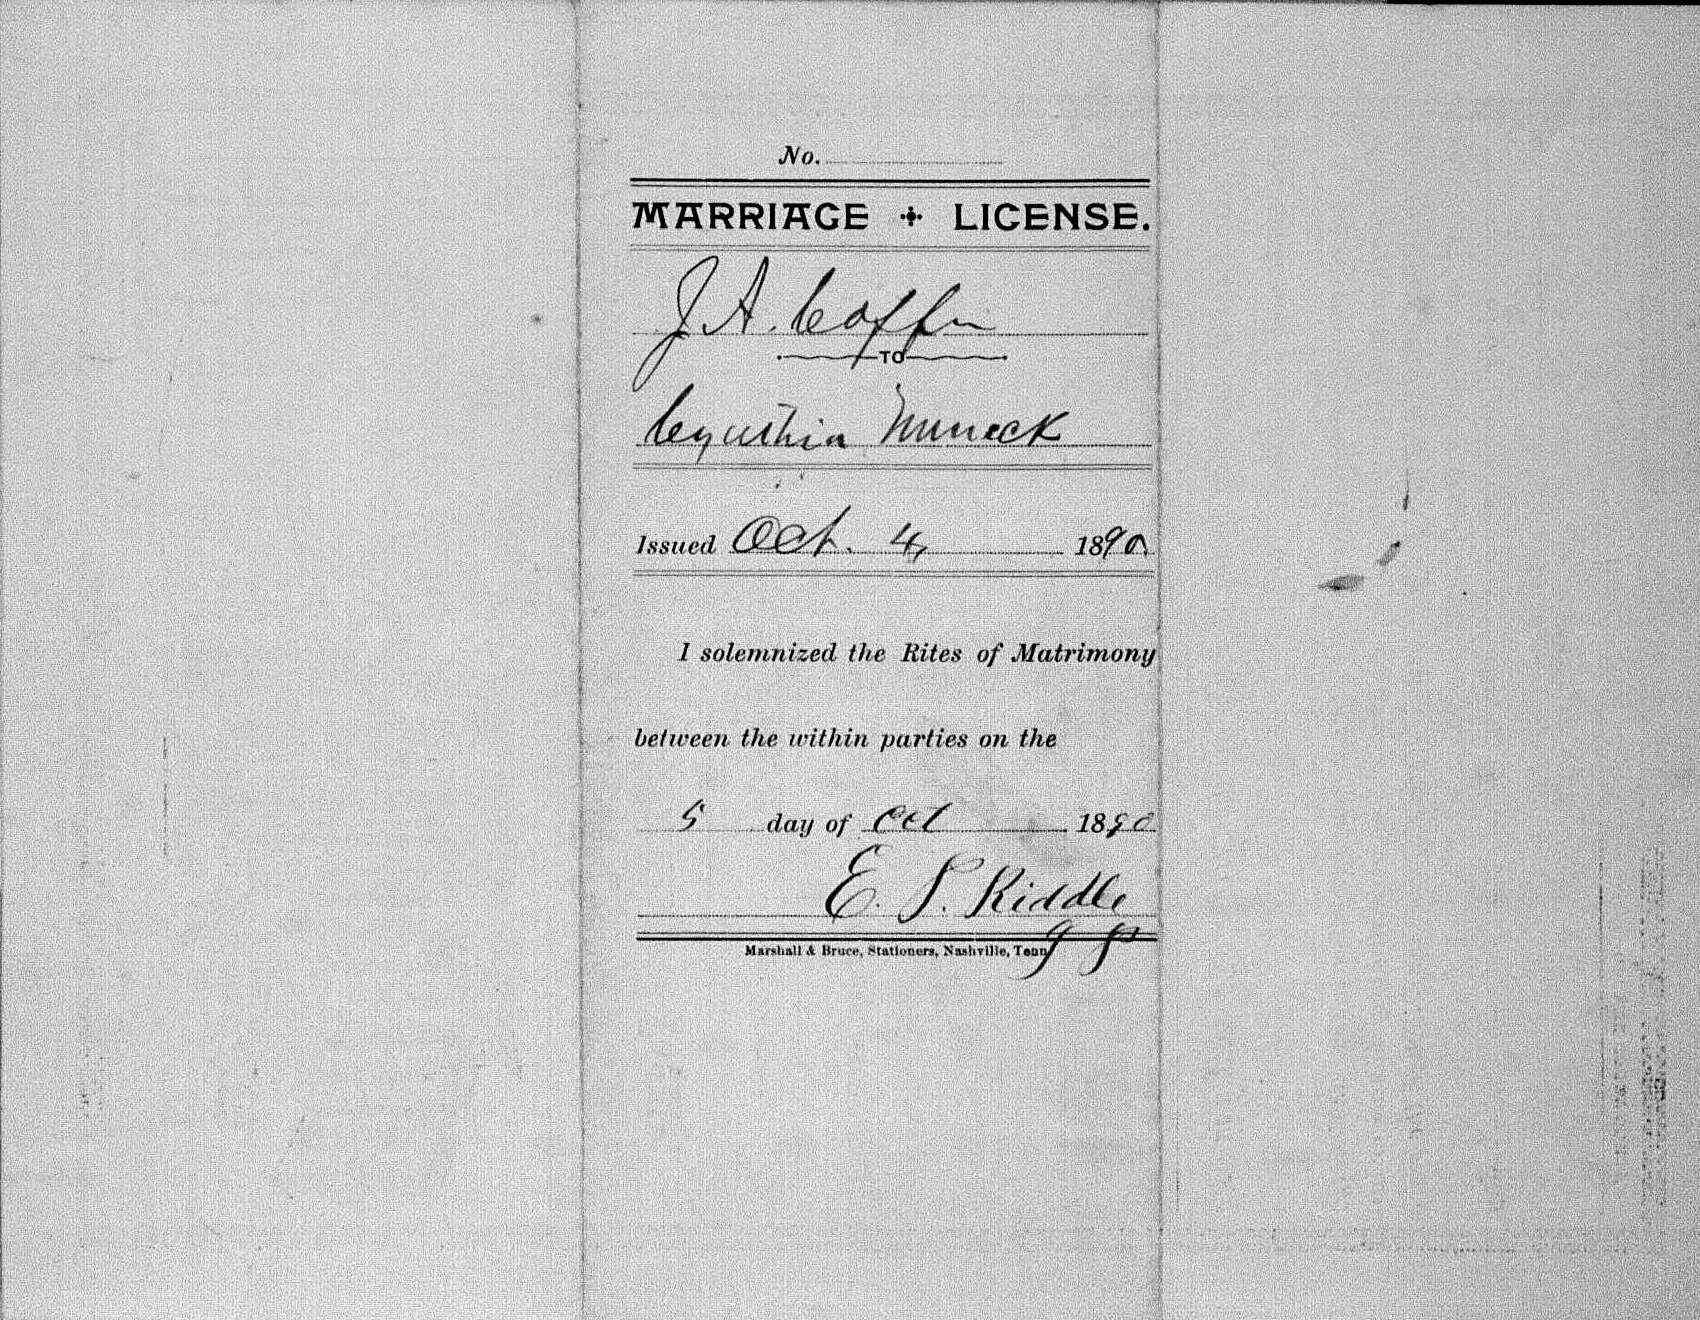 No.
MARRIAGE LICENSE.
J A. Coffin
TO
Cynthia
Issued Oct. 4, 1890
I solemnized the Rites of Matrimony
between the within parties on the
5 day of Oct 1890
E. S. Kiddle
J P
Marshall & Bruce, Stationers, Nashville, Tenn